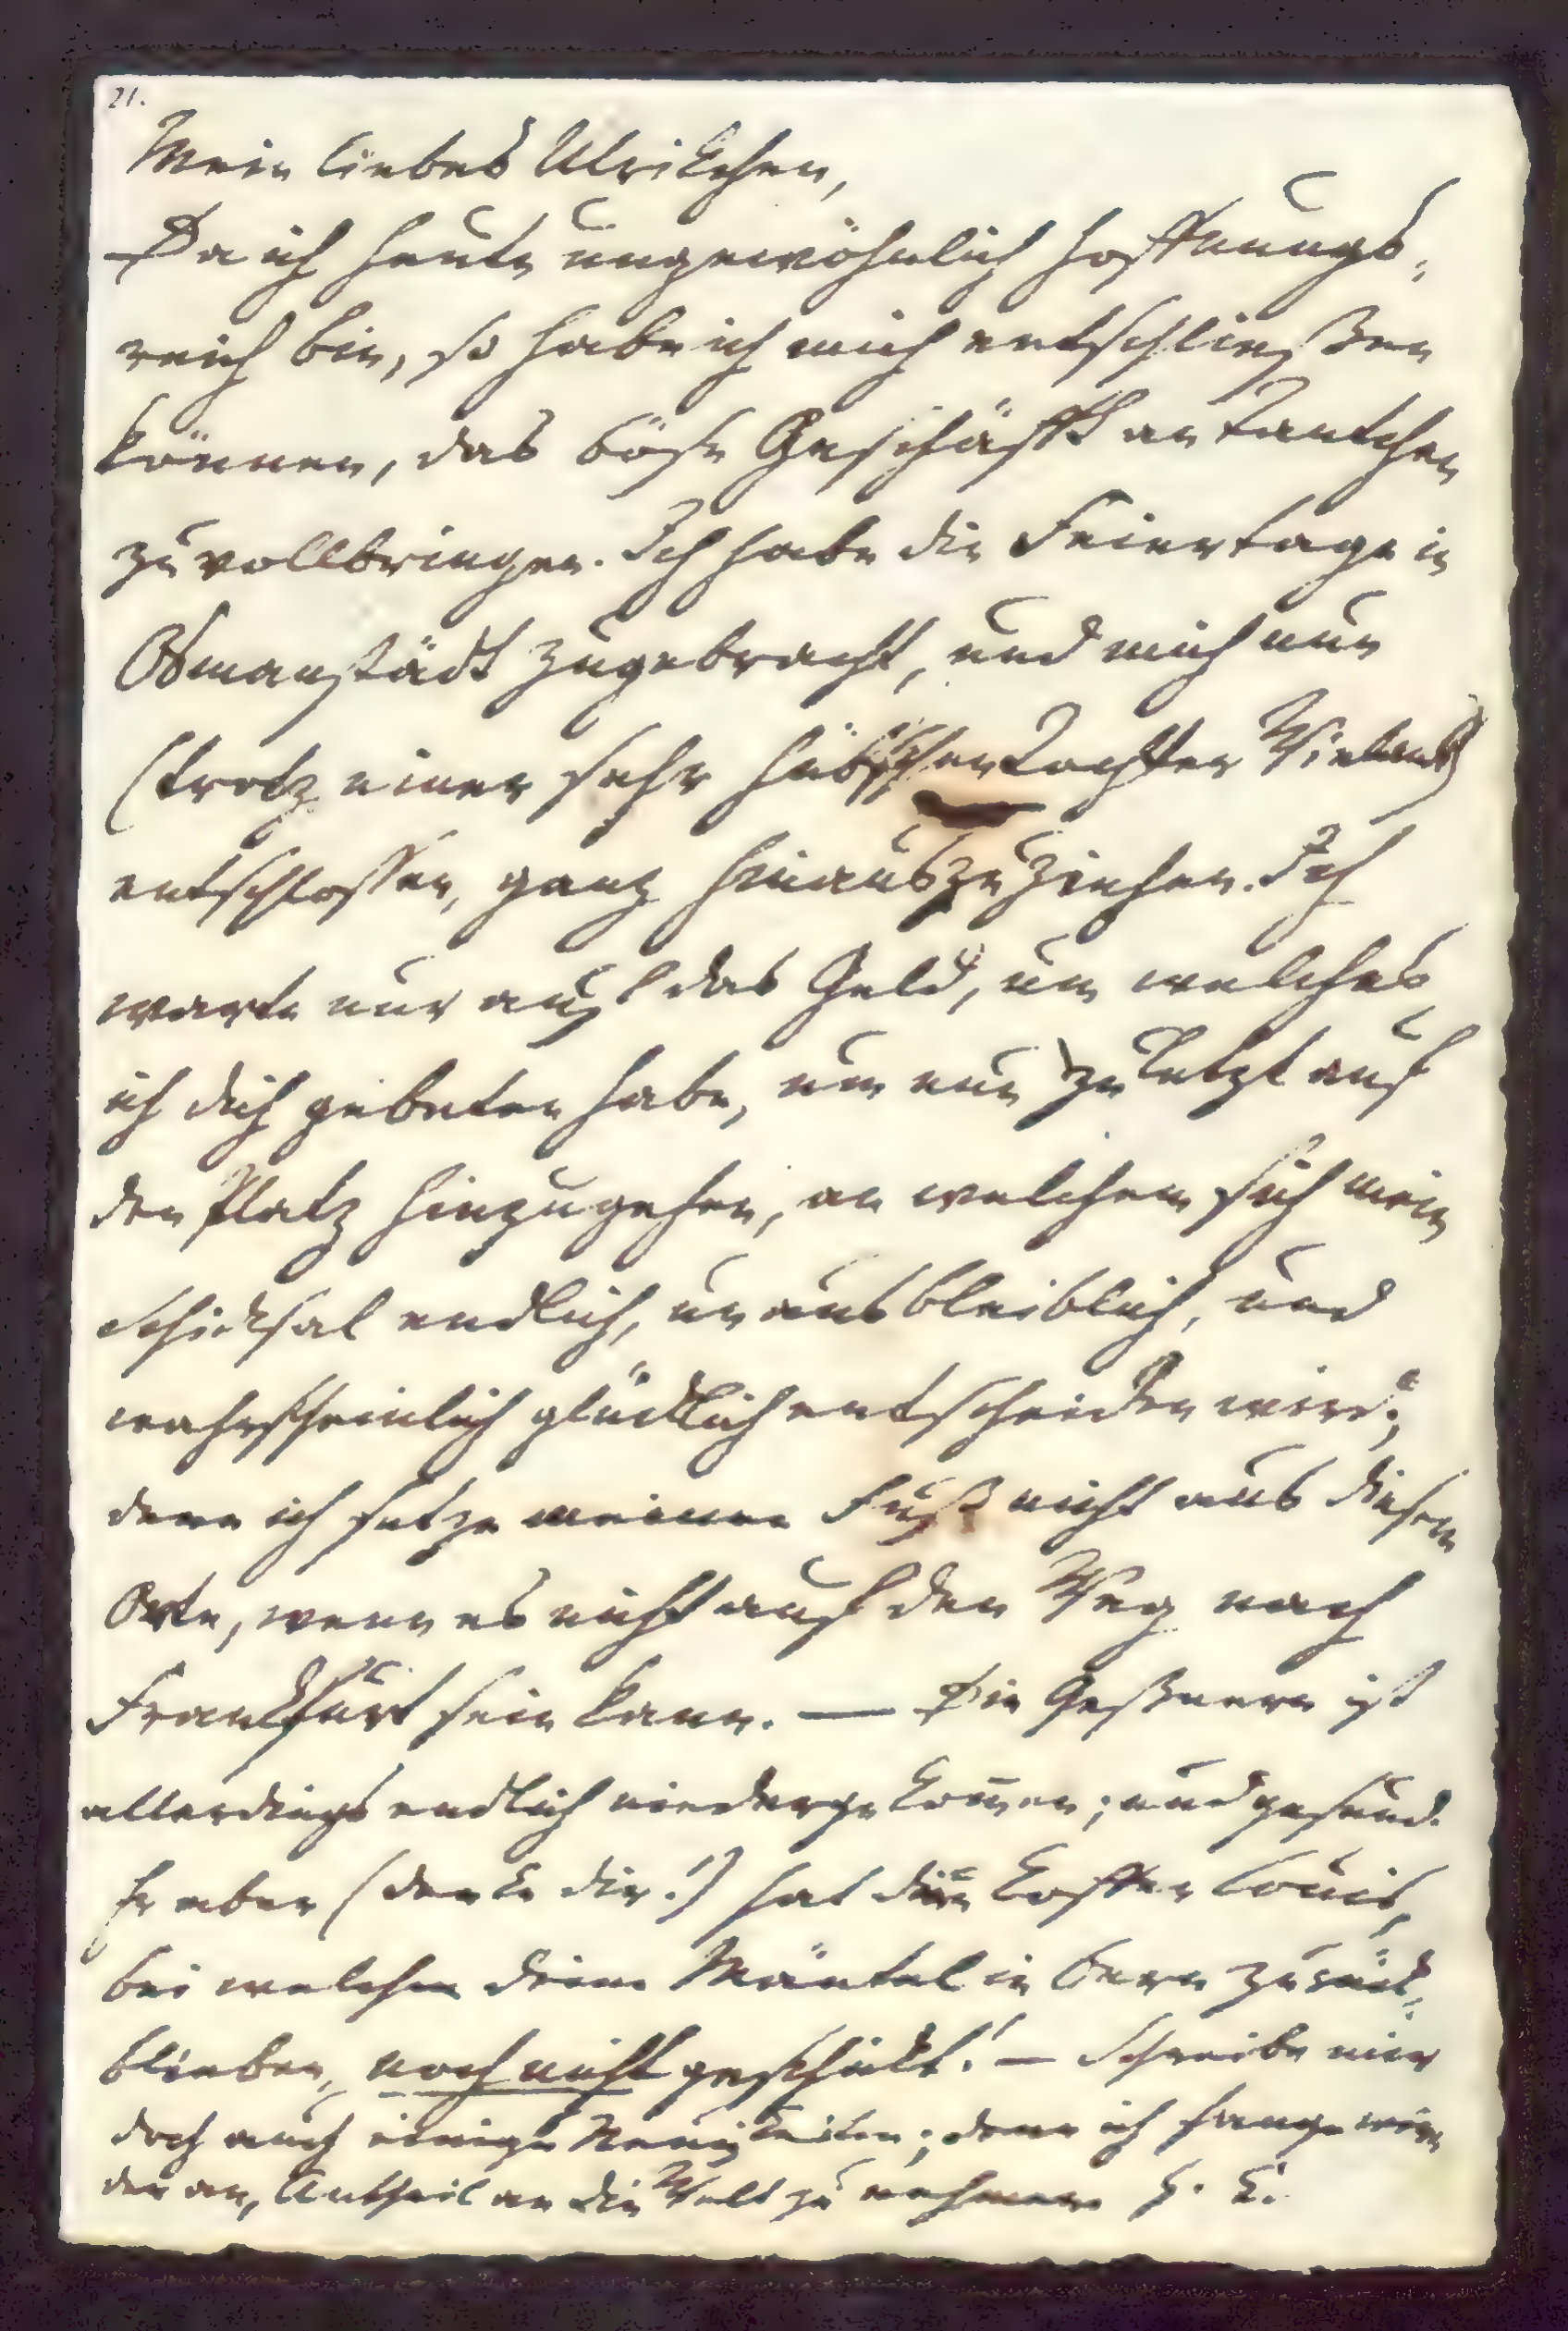 21.
Mein liebes Ulrikchen,
Da ich heute ungewöhnlich hoffnungs-
reich bin, so habe ich mich entschließen
können, das böse Geschäfft an Tantchen
zu vollbringen. Ich habe die Feiertage in
Osmanstädt zugebracht, und mich nun
(trotz einer sehr hübschen Tochter Wielands)
entschlossen, ganz hinauszuziehen. Ich
warte nur auf das Geld, um welches
ich dich gebeten habe, um nun zuletzt auf
den Platz hinzugehen, an welchem sich mein
Schicksal endlich, unausbleiblich, und
wahrscheinlich glücklich entscheiden wird;
denn ich setze meinen Fuß nicht aus diesem
Orte, wenn es nicht auf den Weg nach
Frankfurt sein kann. — Die Geßnern ist
allerdings endlich niedergekom̅en; und gesund.
Er aber (denke dir!) hat die Koffer Louis,
bei welchem deine Mäntel in Bern zurück-
blieben, noch nicht geschickt! — Schreibe mir
doch auch einige Neuigkeiten; denn ich fange wie-
der an, Antheil an die Welt zu nehmen H. K.